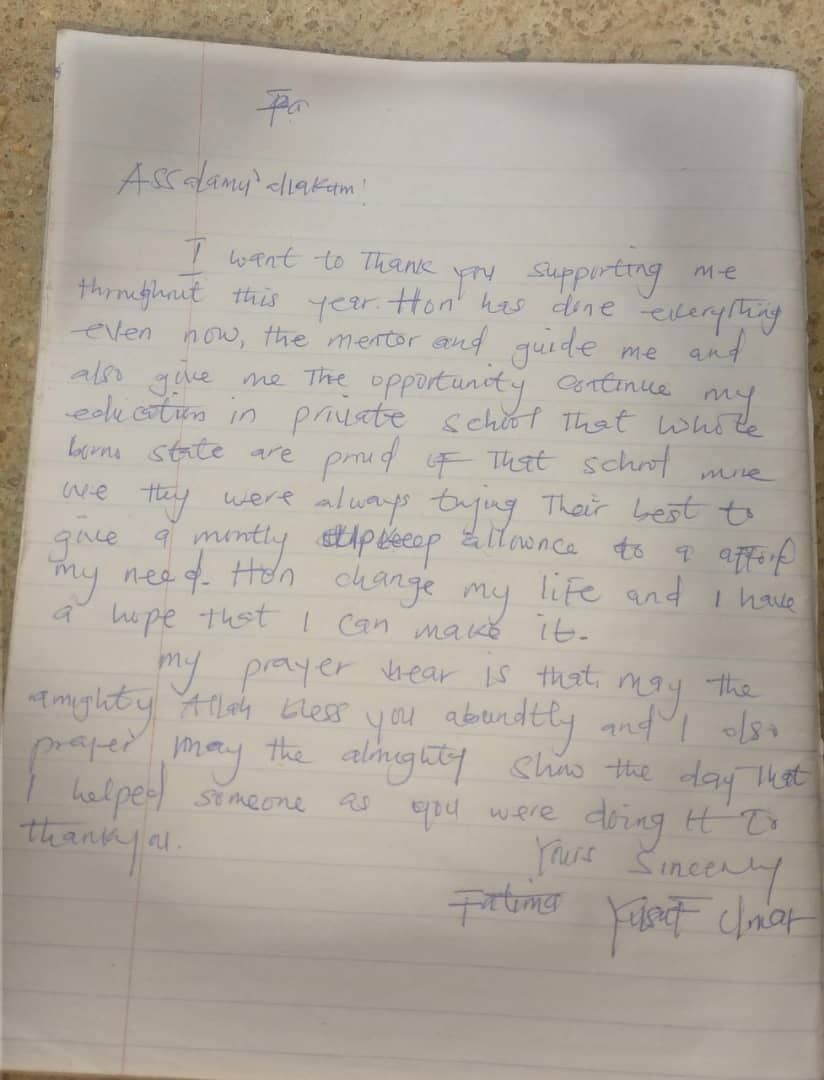 Assalamu'alakum!
I want to Thank you supporting me
throughout this year. Hon has done everything
even now, the mentor and guide me and
also give me The opportunity continue my
education in private school That whole
borno state are proud of That school more
we they were always trying Their best to
give a montly upkeep allownce to a afford
my need. Hon change my life and I have
a hope that I can make it.
my prayer hear is that, may the
amighty Allah bless you abundtly and I also
prayer may the almighty Show the day That
I helped someone as you were doing it To
thank you.
Yours Sincerly
Fatima Yusuf Umar